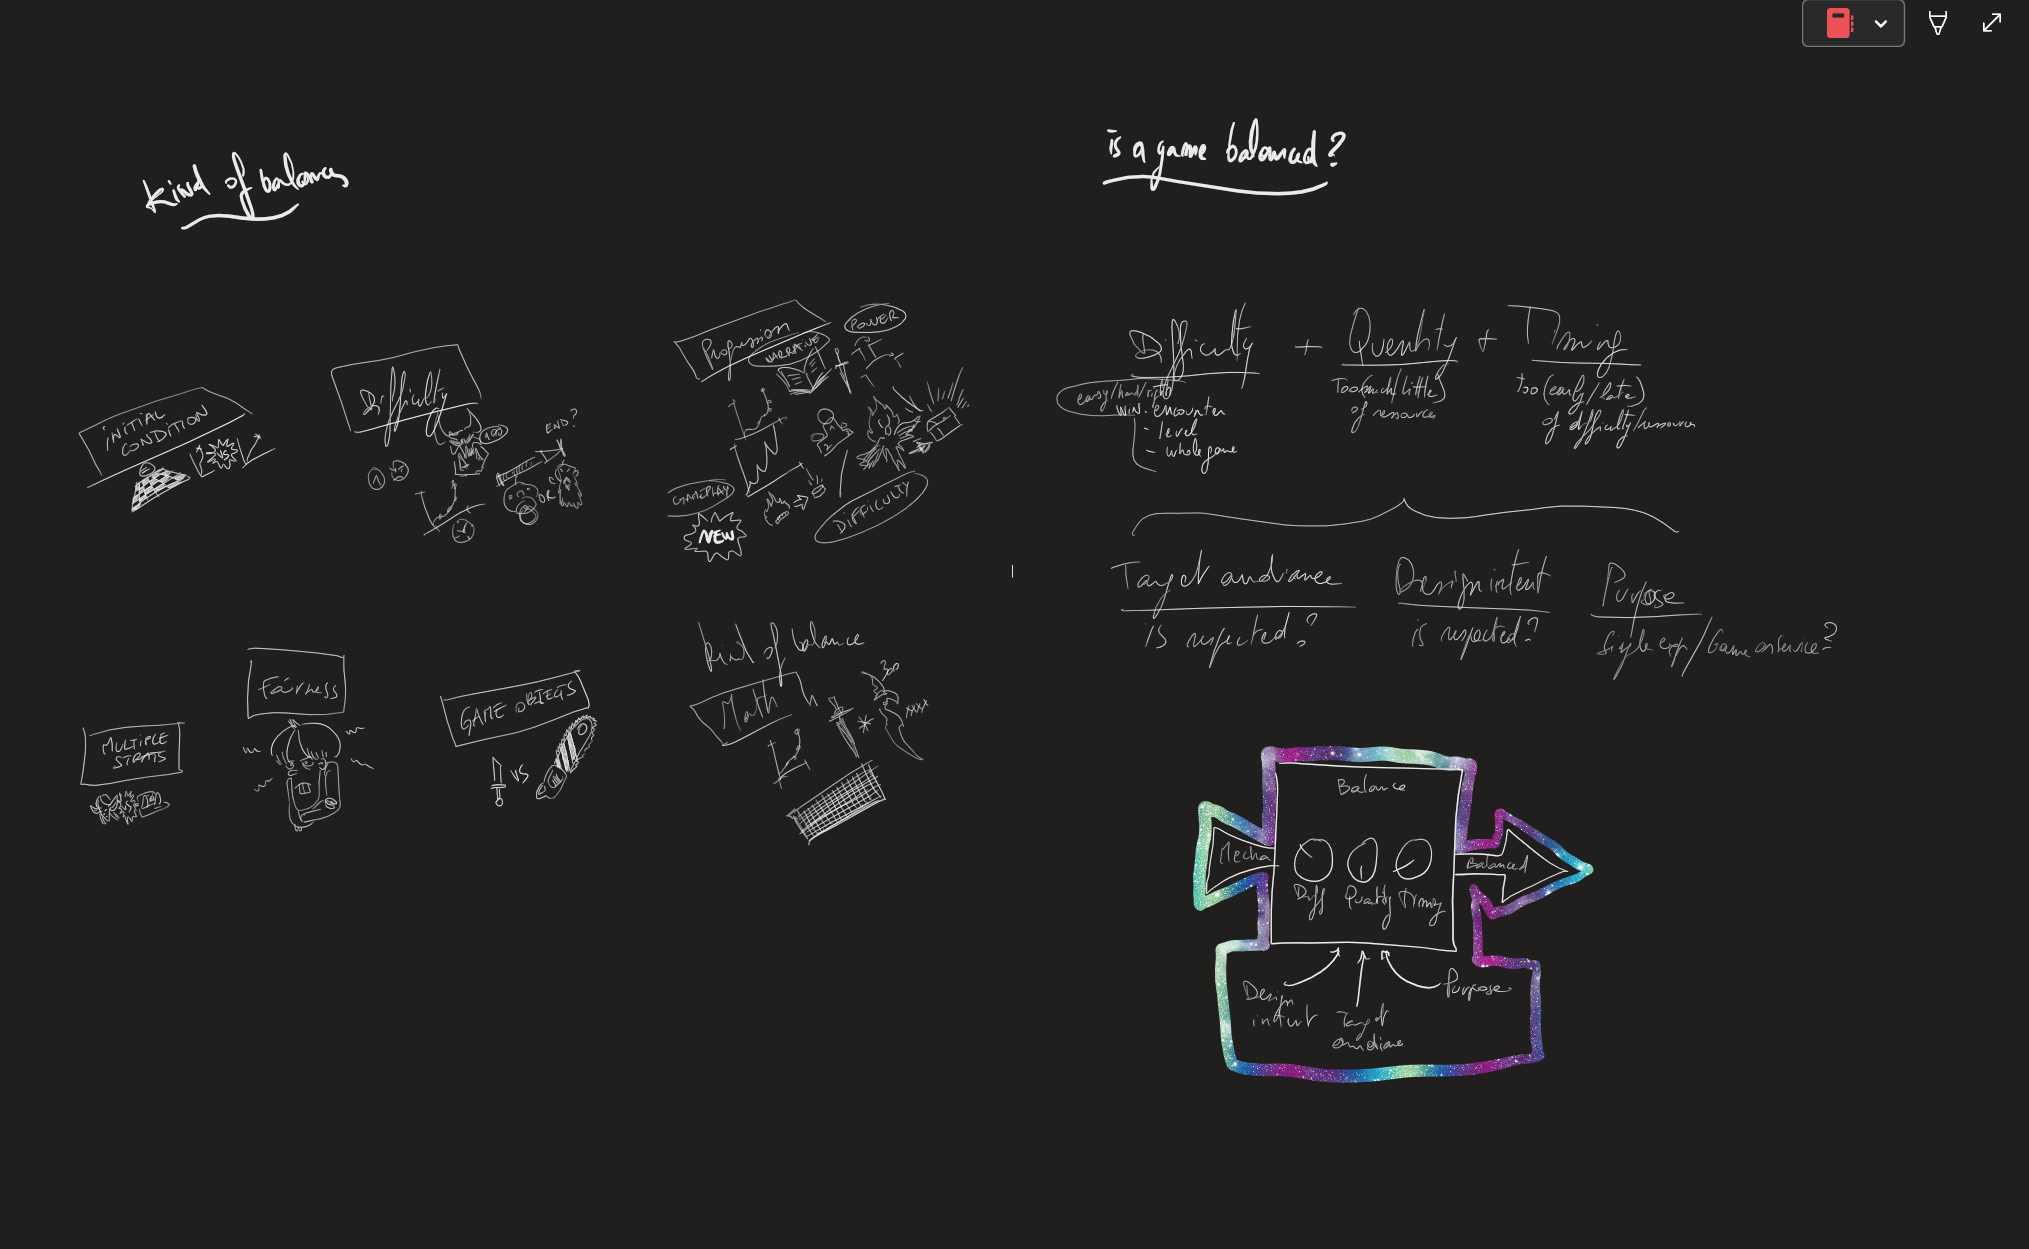 Kind of balances
INITIAL
CONDITION
VS
Difficulty
100
END?
OR
Progression
NARRATIVE
POWER
GAMEPLAY
NEW
DIFFICULTY
MULTIPLE
STRATS
VS
Fairness
GAME OBJECTS
VS
kind of balance
Math
is a game balanced?
Difficulty + Quantity + Timing
easy/hard/right
win - encounter
- level
- whole game
Too (much/little)
of ressources
too (early/late)
of difficulty/ressources
Target audiance
is respected?
Design intent
is respected?
Purpose
Single exp/Game as service?
Balance
Mecha
Diff
Quantity
Timing
Balanced
Design
intent
Target
audiance
Purpose